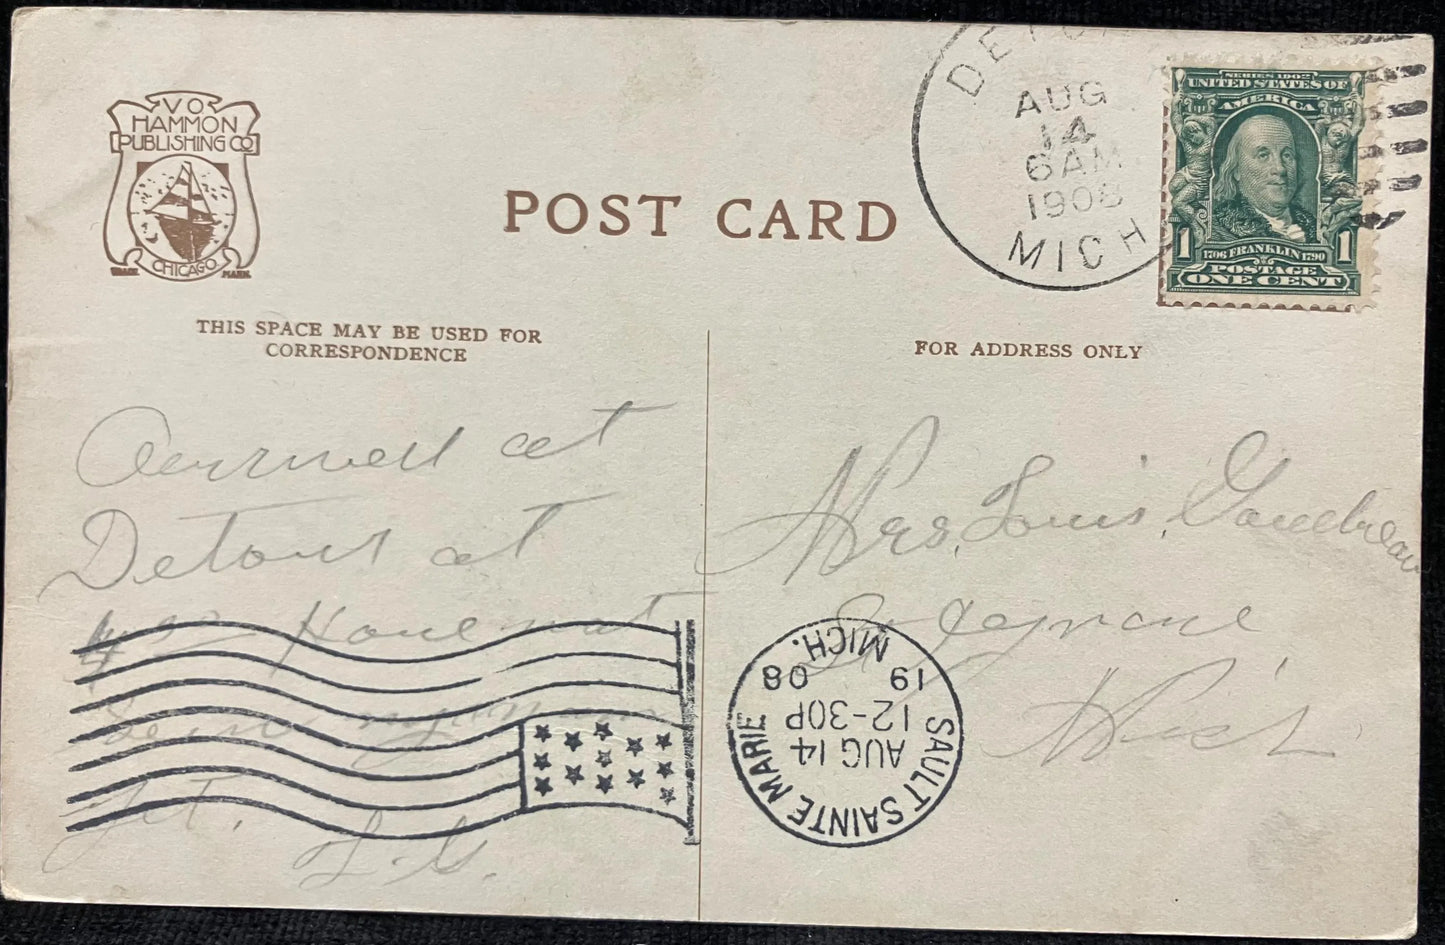 V O
HAMMON
PUBLISHING CO
CHICAGO
TRADE MARK
POST CARD
THIS SPACE MAY BE USED FOR
CORRESPONDENCE
FOR ADDRESS ONLY
DETO
AUG
14
6 AM
1908
MICH
SERIES 1902
UNITED STATES OF
AMERICA
1 1706 FRANKLIN 1790 1
POSTAGE
ONE CENT
at
Detour at
Have not
yet.
L. G.
Mrs. Louis
Mich
SAULT SAINTE MARIE
AUG 14
12-30P
19 08
MICH.